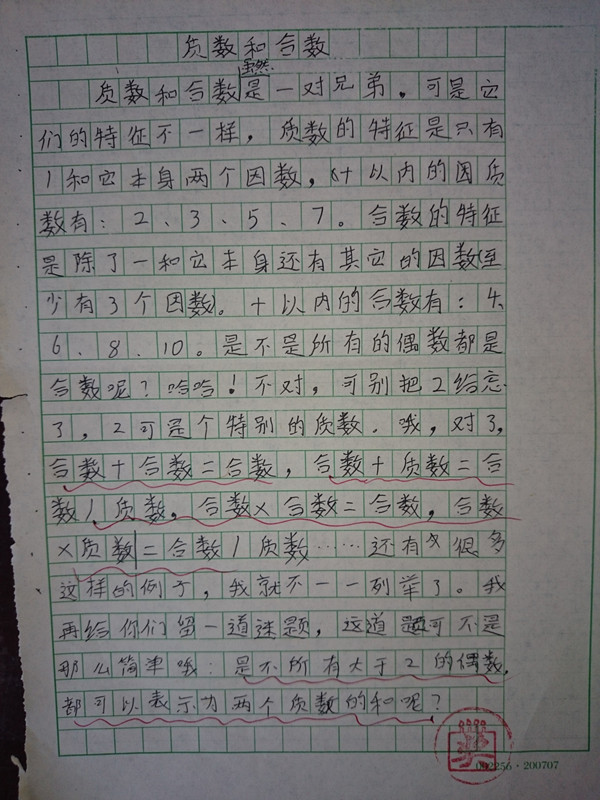 质数和合数
虽然
质数和合数是一对兄弟。可是它
们的特征不一样，质数的特征是只有
1和它本身两个因数，（十以内的因质
数有：2、3、5、7。合数的特征
是除了一和它本身还有其它的因数（至
少有3个因数）。十以内的合数有：4、
6、8、10。是不是所有的偶数都是
合数呢？哈哈！不对，可别把2给忘
了，2可是个特别的质数．哦，对了，
合数＋合数＝合数，合数＋质数＝合
数/质数，合数×合数＝合数，合数
×质数＝合数/质数……还有很多
这样的例子，我就不一一列举了。我
再给你们留一道迷题，这道题可不是
那么简单哦：是不所有大于2的偶数，
都可以表示为两个质数的和呢？
奖
002256·200707